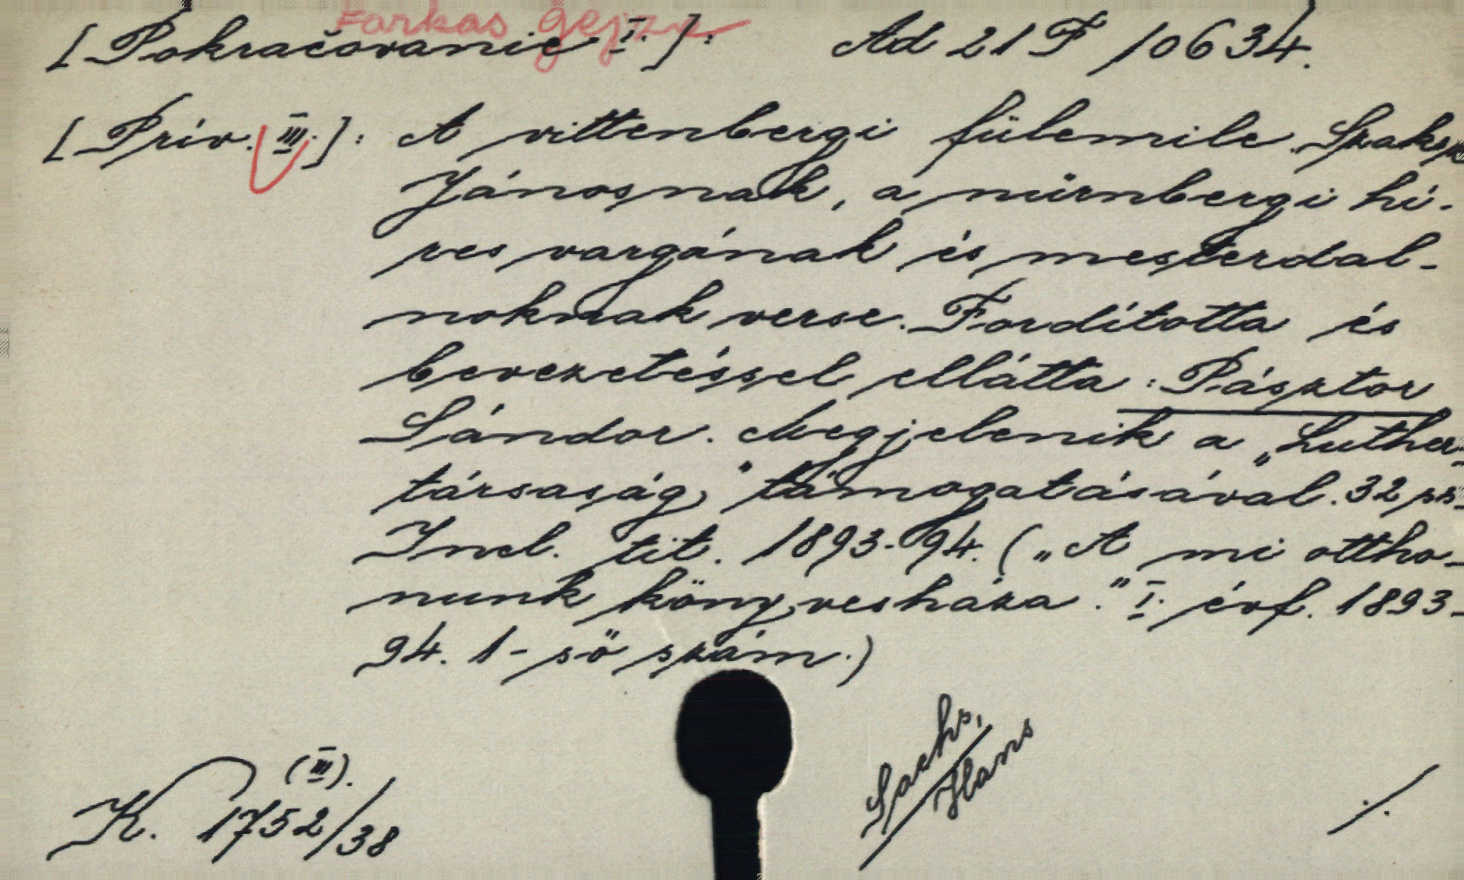 Farkas Gejza
[Pokračovanie I.]: Ad 21 F 10634.
[Prív. III.]: A vittenbergi fülemile. Szaksz
Jánosnak, a nürnbergi hí-
res vargának és mesterdal-
noknak verse. Fordította és
bevezetéssel ellátta: Pásztor
Sándor. Megjelenik a „Luther-
társaság" támogatásával. 32 str.
Incl. tit. 1893-94. („A mi ottho-
nunk könyvesháza." I. évf. 1893-
94. 1-ső szám.)
Sachs,
Hans
(III).
K. 1752/38
./.